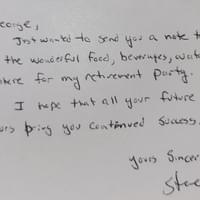 eorge,
Just wanted to send you a note t
the wonderful food, beverages, wait
here for my retirement party.
I hope that all your future
urs bring you continued success.
Yours Sincer
Steve